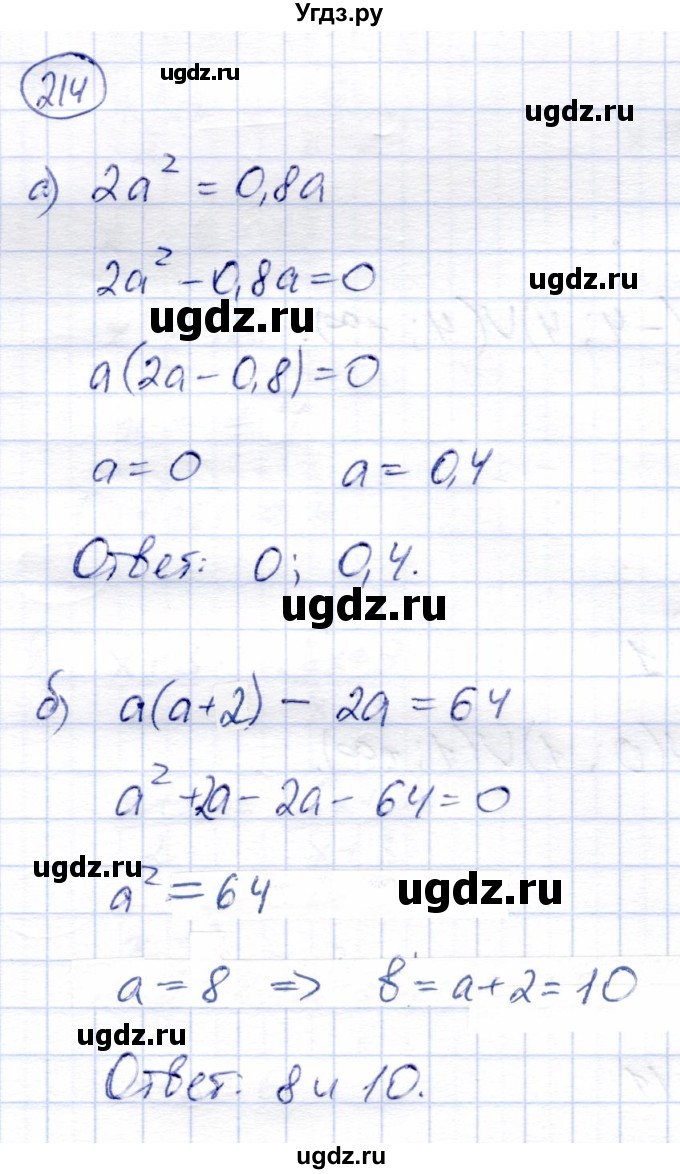 Угдз.ру
214
ugdz.ru
ugdz.ru
а) 2a² = 0,8a
2a² - 0,8a = 0
ugdz.ru
ugdz.ru
a(2a - 0,8) = 0
a = 0 a = 0,4
Ответ: 0; 0,4.
ugdz.ru
б) a(a+2) - 2a = 64
a² + 2a - 2a - 64 = 0
ugdz.ru
a² = 64
ugdz.ru
a = 8 => b = a + 2 = 10
ugdz.ru
Ответ: 8 и 10.
ugdz.ru